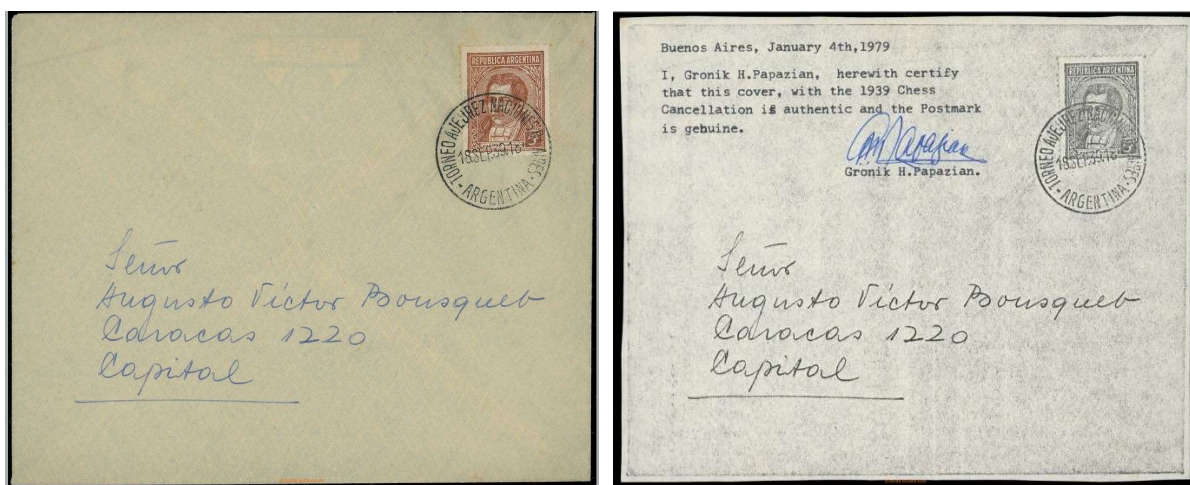 REPUBLICA ARGENTINA
TORNEO AJEDREZ NACIONES
18.SEP.39.18
- ARGENTINA -
Señor
Augusto Víctor Bousquet
Caracas 1220
Capital
Buenos Aires, January 4th,1979
I, Gronik H.Papazian, herewith certify
that this cover, with the 1939 Chess
Cancellation is authentic and the Postmark
is gebuine.
Gronik H.Papazian.
REPUBLICA ARGENTINA
TORNEO AJEDREZ NACIONES
18.SEP.39.18
- ARGENTINA -
Señor
Augusto Víctor Bousquet
Caracas 1220
Capital